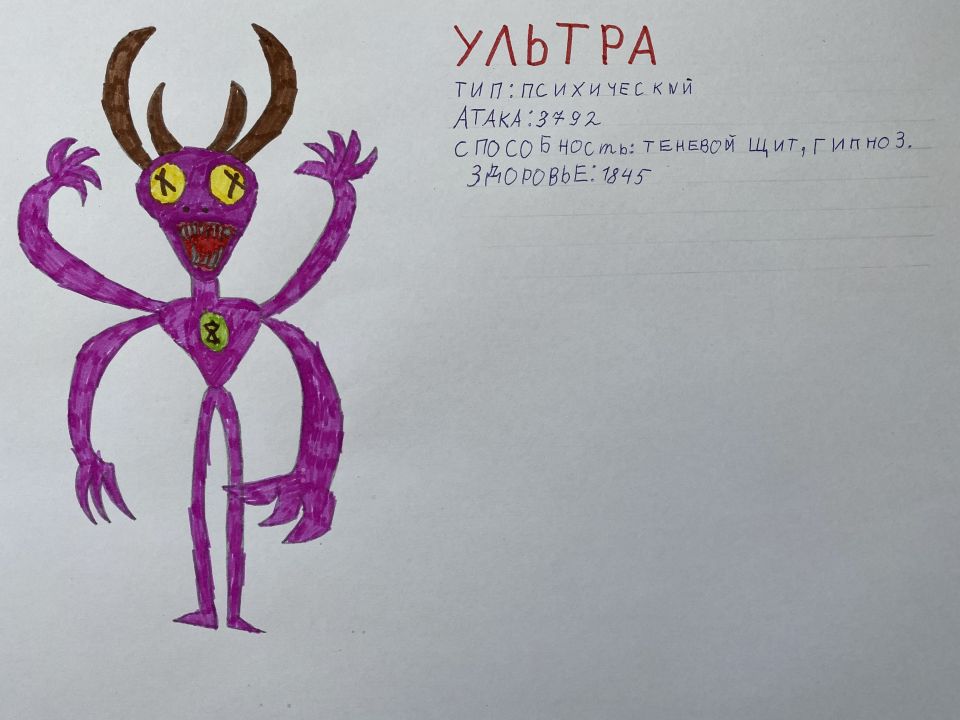 УЛЬТРА
ТИП: ПСИХИЧЕСКИЙ
АТАКА: 3792
СПОСОБНОСТЬ: ТЕНЕВОЙ ЩИТ, ГИПНОЗ.
ЗДОРОВЬЕ: 1845